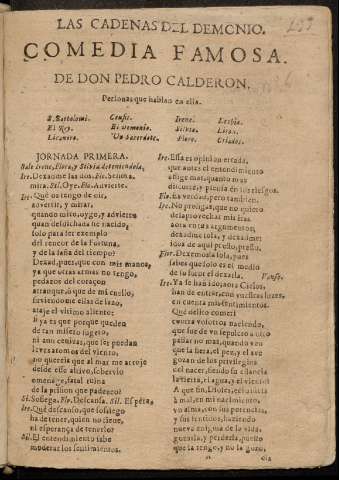 LAS CADENAS DEL DEMONIO.
COMEDIA FAMOSA.
DE DON PEDRO CALDERON.
Personas que hablan en ella.
S. Bartolomè. Ceusis. Irene. Lesbia.
El Rey. El Demonio. Silvia. Liron.
Licanoro. Un Sacerdote. Flora. Criados.
JORNADA PRIMERA.
Sale Irene, Flora, y Silvia deteniendola.
Ire. Dexadme las dos. Flo. Señora,
mira. Sil. Oye. Flo. Advierte.
Ire. Què os tengo de oir,
advertir, y mirar,
quando miro, oygo, y advierto
quan desdichada he nacido,
solo para ser exemplo
del rencor de la fortuna,
y de la saña del tiempo?
Dexad, pues, que con mis manos,
ya que otras armas no tengo,
pedazos del coraçon
arranque, ò que de mi cuello,
sirviendome ellas de lazo,
ataje el vltimo aliento:
si ya es que porque queden
de tan misero sugeto,
ni aun cenizas, que ser puedan
leves atomos del viento,
no quereis que al mar me arroje
desde esse altivo, sobervio
omenage, fatal ruina
de la prision que padezco?
Sil. Sossiega. Flo. Descansa. Sil. Espera,
Ire. Què descanso, què sossiego
ha de tener, quien no tiene,
ni esperança de tenerlo?
Sil. El entendimiento sabe
moderar los sentimientos.
Ire. Essa es opinion errada,
que antes el entendimiento
aflige mas, quanto mas
discurre, y piensa en los riesgos.
Flo. Es verdad, pero tambien.
Ire. No prosigas, que no quiero
de aprovechar mis iras
aora en tus argumentos;
dexadme sola, y dexadme;
idos de aqui presto, presto.
Flor. Dexemosla sola, pues
sabes que solo es el medio
de su furor el dexarla. Vanse.
Ire. Ya se han ido; aora Cielos,
han de entrar, con vuestras luzes,
en cuenta mis sentimientos.
Què delito cometì
contra vosotros naciendo,
que fue de vn sepulcro à otro
passar no mas, quando veo
que la fiera, el pez, y el ave
gozan de los privilegios
del nacer, siendo su estancia
la tierra, el agua, y el viento?
A què fin, Dioses, echasteis
à mal, en mi nacimiento,
vn alma, con sus potencias,
y sus sentidos, haziendo
nuevo enigma de la vida
gozarla, y perderla, puesto
que la tengo, y no la gozo,